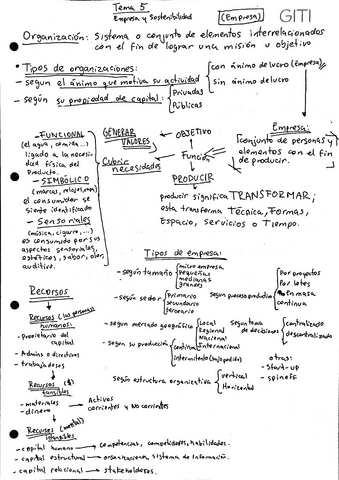 Tema 5
Empresa y Sostenibilidad
(Empresa) GITI
Organización: Sistema o conjunto de elementos interrelacionados
con el fin de lograr una misión u objetivo
• Tipos de organizaciones:
- segun el ánimo que motiva su actividad
con ánimo de lucro (Empresa)
sin ánimo de lucro
- según su propiedad de capital:
Privadas
Públicas
- FUNCIONAL
(el agua, comida...)
ligado a la necesi-
dad física del
Producto.
- SIMBÓLICO
(marcas, relojes, ron)
el consumidor se
siente identificado
- Sensoriales
(música, cigarro, ...)
es consumido por sus
aspectos sensoriales,
estéticos, sabor, olor,
auditivo.
GENERAR
VALORES
Cubrir
necesidades
OBJETIVO
Función
PRODUCIR
producir significa TRANSFORMAR;
esta transforma Técnica, Formas,
Espacio, Servicios o Tiempo.
Empresa:
conjunto de personas y
elementos con el fin
de producir.
Tipos de empresa:
- según tamaño
micro empresa
pequeñas
medianas
grandes
- según sector
Primario
secundario
terciario
según proceso productivo
Por proyectos
Por lotes
en masa
continua
- según mercado geográfico
Local
Regional
Nacional
Internacional
según toma
de decisiones
centralizado
descentralizado
- según su producción
continua
intermitente (bajo pedidos)
otras:
- start-up
- spin off
según estructura organizativa
vertical
Horizontal
Recursos
Recursos (las personas)
humanos:
- Propietario del
capital
- Admins o directivos
- trabajadores
Recursos ($)
tangibles
- materiales
- dinero
Activos
corrientes y No corrientes
Recursos (mental)
intangibles
- capital humano → competencias, competividades, habilidades.
- capital estructural → organizacion, sistema de información.
- capital relacional → stakeholders.